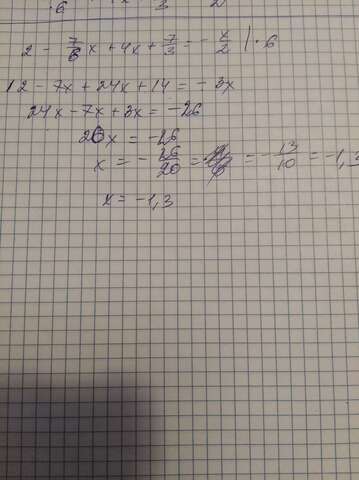 2 - 7/6 x + 4x + 7/3 = - x/2 | · 6
12 - 7x + 24x + 14 = - 3x
24x - 7x + 3x = - 26
20x = - 26
x = - 26/20 = - 13/10 = - 1,3
x = - 1,3